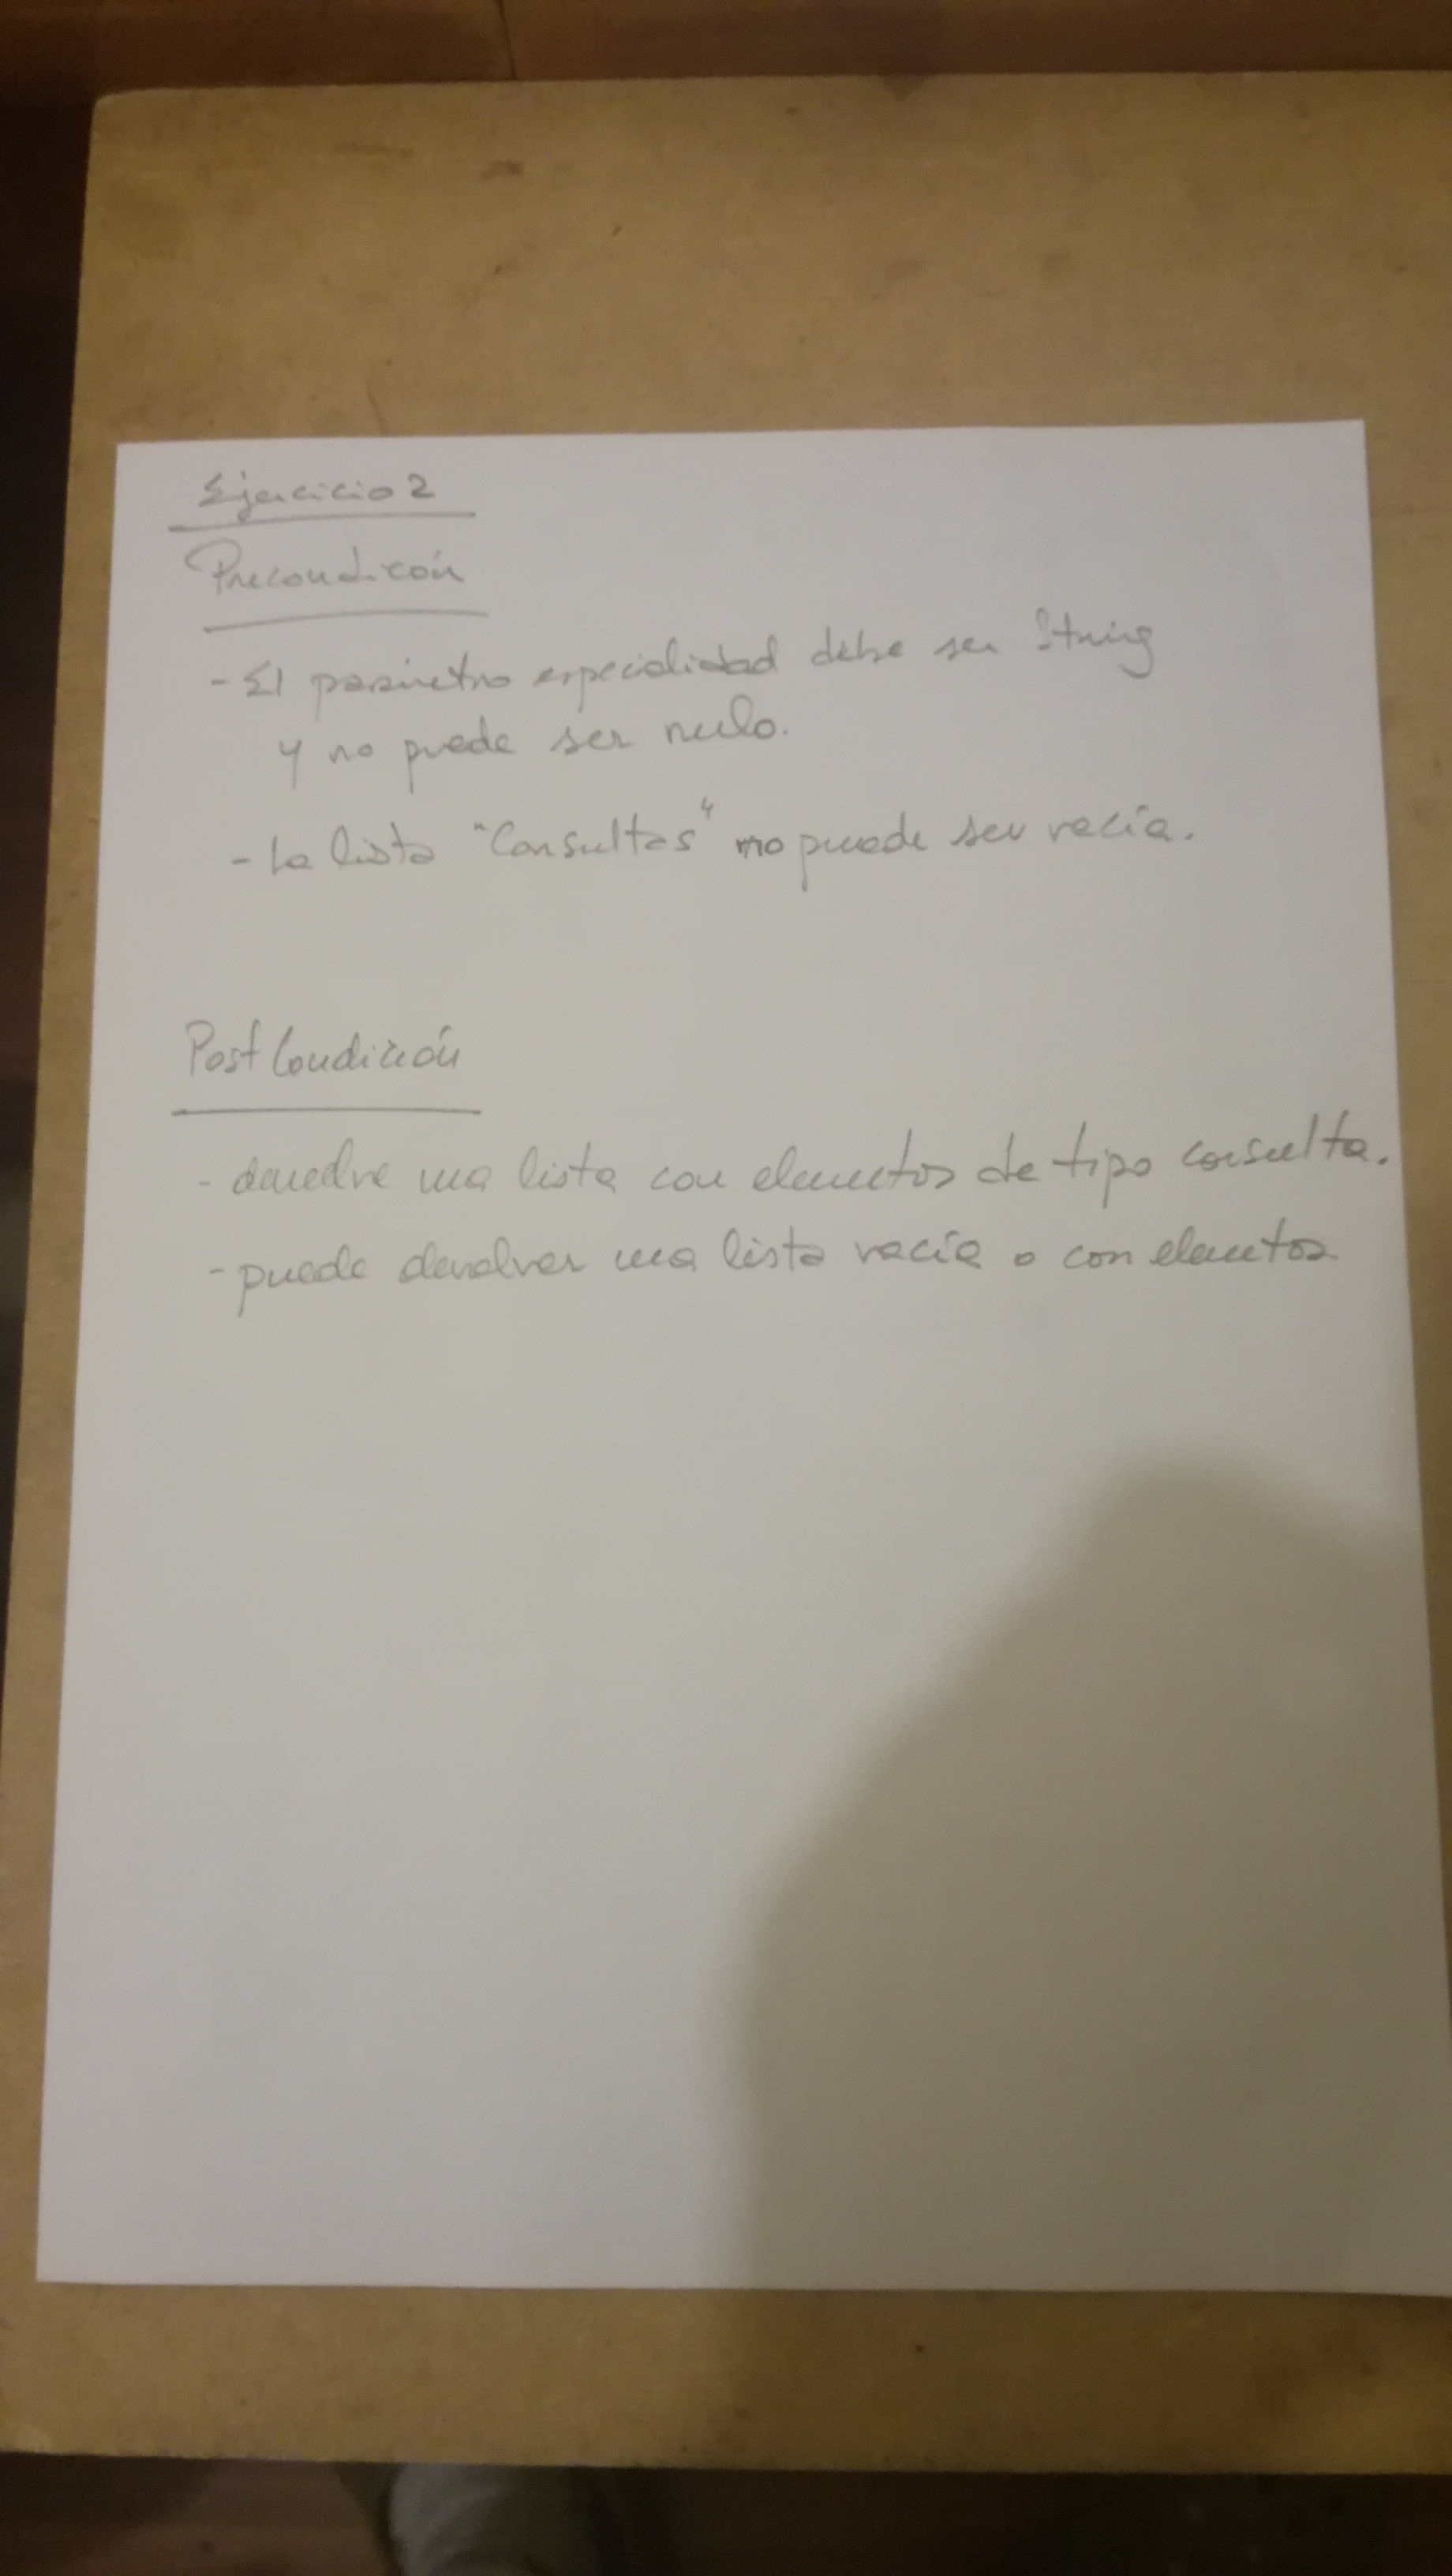 Ejercicio 2
Precondición
- El parámetro especialidad debe ser String
y no puede ser nulo.
- La lista "Consultas" no puede ser vacía.
Post Condición
- devuelve una lista con elementos de tipo consulta.
- puede devolver una lista vacía o con elementos